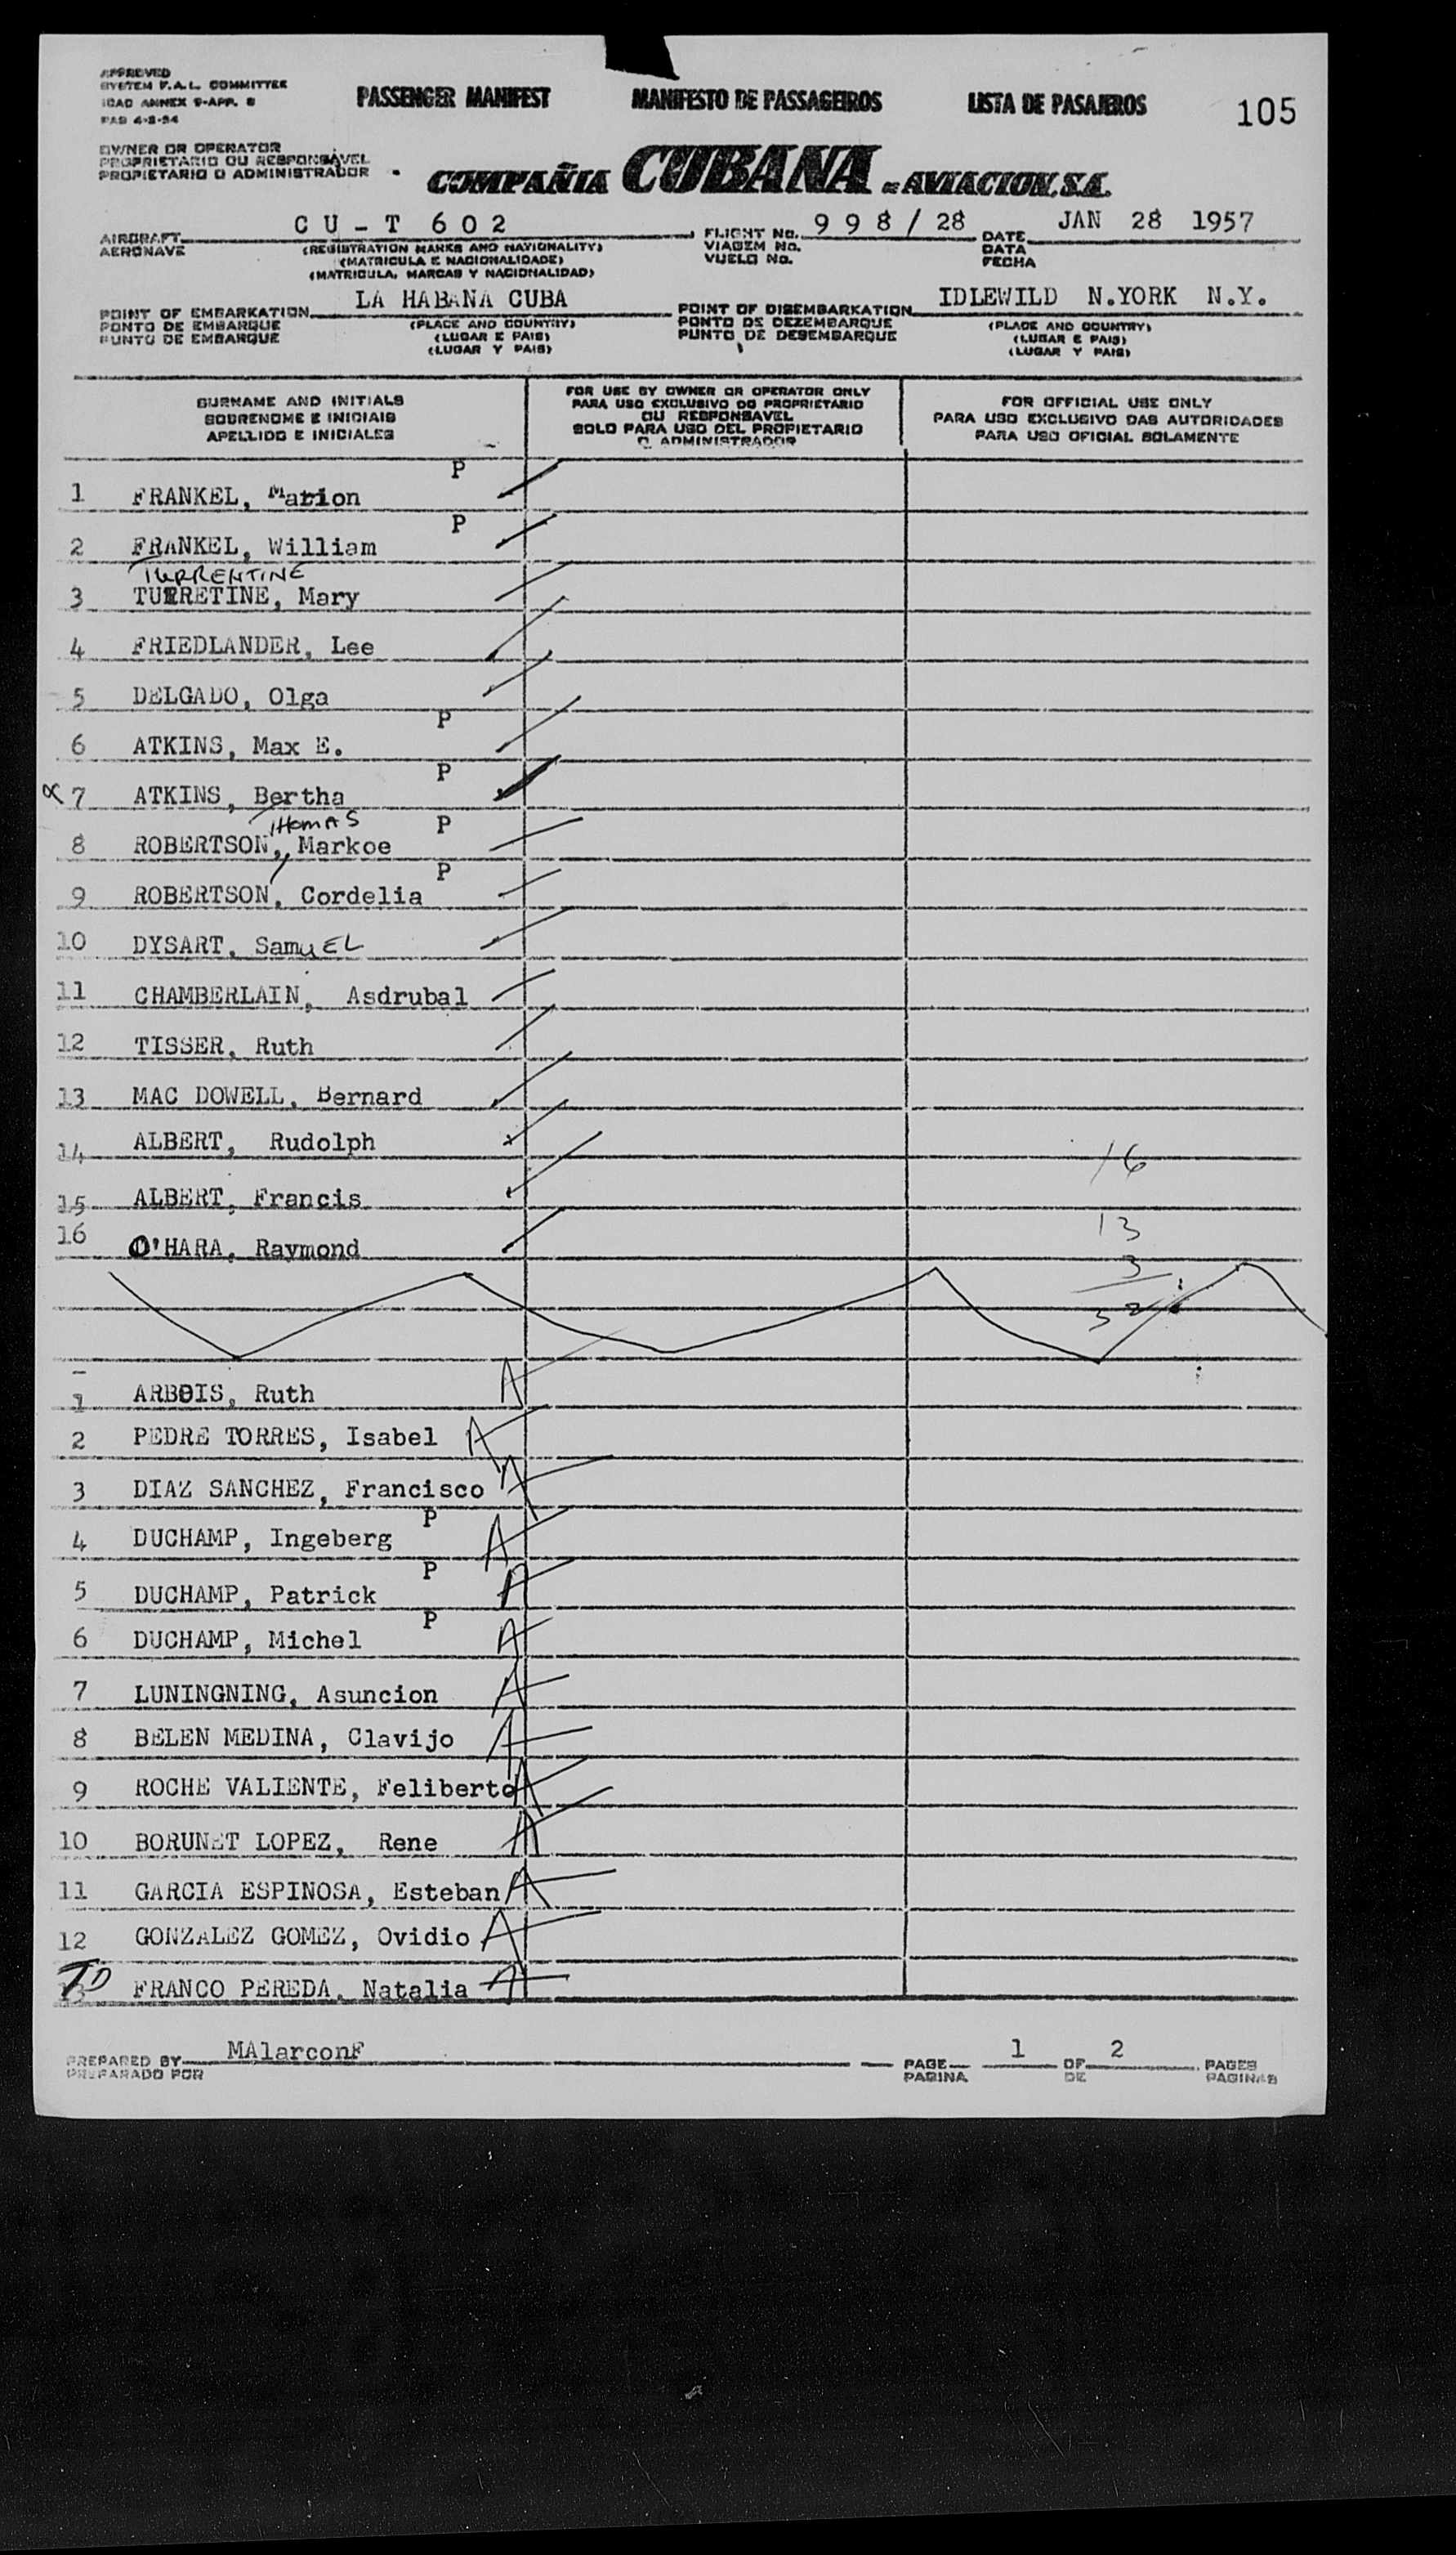 APPROVED
SYSTEM F.A.L. COMMITTEE
ICAO ANNEX 9-APP. 8
PAB 4-8-54
PASSENGER MANIFEST MANIFESTO DE PASSAGEIROS LISTA DE PASAJEROS 105
OWNER OR OPERATOR
PROPRIETARIO OU RESPONSÁVEL
PROPIETARIO O ADMINISTRADOR
COMPAÑIA CUBANA DE AVIACION, S.A.
AIRCRAFT CU-T 602 FLIGHT No. 998/28 DATE JAN 28 1957
AERONAVE (REGISTRATION MARKS AND NATIONALITY) VIAGEM No. DATA
(MATRICULA E NACIONALIDADE) VUELO No. FECHA
(MATRICULA, MARCAS Y NACIONALIDAD)
POINT OF EMBARKATION LA HABANA CUBA POINT OF DISEMBARKATION IDLEWILD N.YORK N.Y.
PONTO DE EMBARQUE (PLACE AND COUNTRY) PONTO DE DEZEMBARQUE (PLACE AND COUNTRY)
PUNTO DE EMBARQUE (LUGAR E PAIS) PUNTO DE DESEMBARQUE (LUGAR E PAIS)
(LUGAR Y PAIS) (LUGAR Y PAIS)
SURNAME AND INITIALS
SOBRENOME E INICIAIS
APELLIDO E INICIALES
FOR USE BY OWNER OR OPERATOR ONLY
PARA USO EXCLUSIVO DO PROPRIETARIO
OU RESPONSAVEL
SOLO PARA USO DEL PROPIETARIO
O ADMINISTRADOR
FOR OFFICIAL USE ONLY
PARA USO EXCLUSIVO DAS AUTORIDADES
PARA USO OFICIAL SOLAMENTE
P
1 FRANKEL, Marion
P
2 FRANKEL, William
TURRENTINE
3 TURRETINE, Mary
4 FRIEDLANDER, Lee
5 DELGADO, Olga
P
6 ATKINS, Max E.
P
7 ATKINS, Bertha
THOMAS P
8 ROBERTSON, Markoe
P
9 ROBERTSON, Cordelia
10 DYSART, SamuEL
11 CHAMBERLAIN, Asdrubal
12 TISSER, Ruth
13 MAC DOWELL, Bernard
14 ALBERT, Rudolph
16
15 ALBERT, Francis
13
16 O'HARA, Raymond
3
32
1 ARBOIS, Ruth A
2 PEDRE TORRES, Isabel A
3 DIAZ SANCHEZ, Francisco A
P
4 DUCHAMP, Ingeberg A
P
5 DUCHAMP, Patrick A
P
6 DUCHAMP, Michel A
7 LUNINGNING, Asuncion A
8 BELEN MEDINA, Clavijo A
9 ROCHE VALIENTE, Feliberto A
10 BORUNET LOPEZ, Rene A
11 GARCIA ESPINOSA, Esteban A
12 GONZALEZ GOMEZ, Ovidio A
TD
13 FRANCO PEREDA, Natalia A
PREPARED BY MAlarconF PAGE 1 OF 2 PAGES
PREPARADO POR PAGINA DE PAGINAS